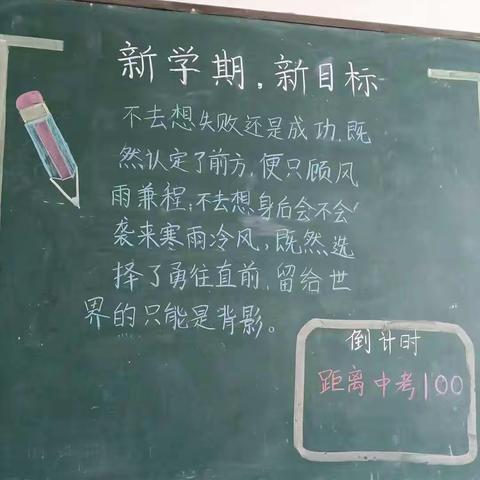 新学期，新目标
不去想失败还是成功，既
然认定了前方，便只顾风
雨兼程；不去想身后会不会
袭来寒雨冷风，既然选
择了勇往直前，留给世
界的只能是背影。
倒计时
距离中考100